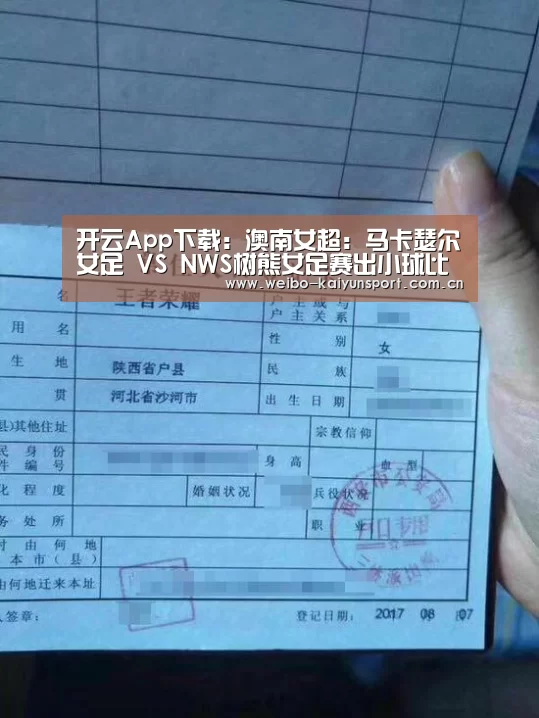 开云App下载：澳南女超：马卡瑟尔
女足 VS NWS树熊女足赛出小球比
www.weibo-kaiyunsport.com.cn
名 王者荣耀 户主或与
户主关系
用名 性别 女
生地 陕西省户县 民族
贯 河北省沙河市 出生日期
县)其他住址 宗教信仰
民身份
件编号 身高 血型
化程度 婚姻状况 兵役状况
务处所 职业
时由何地
本市（县）
由何地迁来本址
人签章： 登记日期：2017 08 07
西安市公安局
户口专用